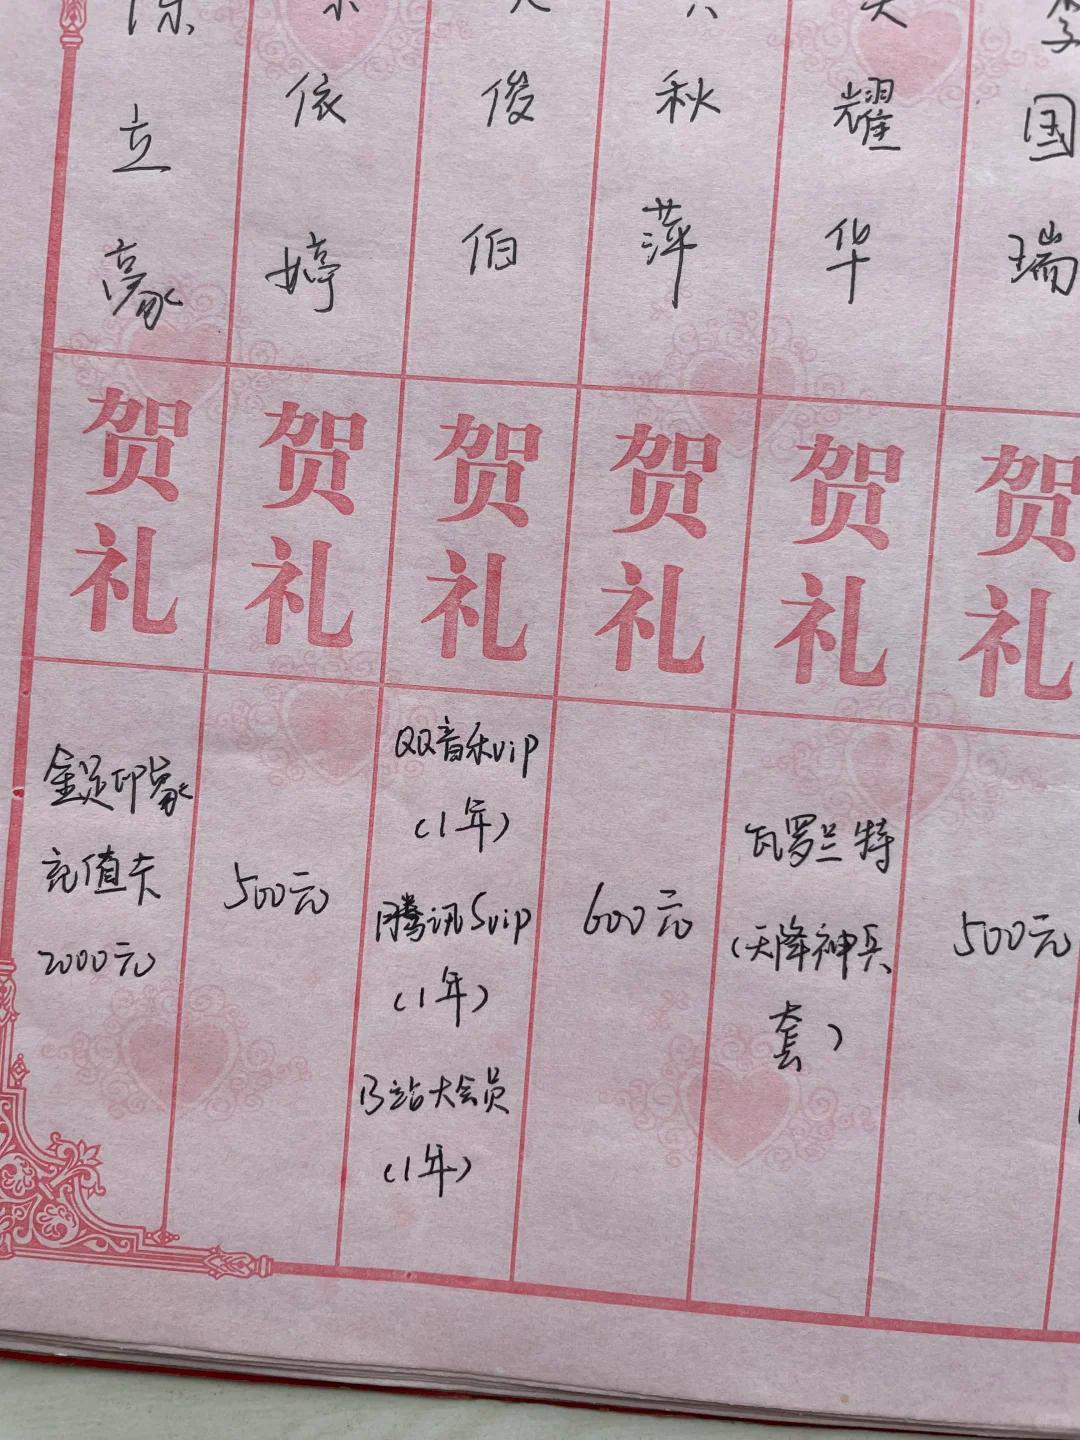 立豪
贺礼
金足印象
充值卡
2000元
依婷
贺礼
500元
俊伯
贺礼
QQ音乐vip
(1年)
腾讯Svip
(1年)
B站大会员
(1年)
秋萍
贺礼
600元
耀华
贺礼
瓦罗兰特
(天降神兵
套)
李国瑞
贺礼
500元